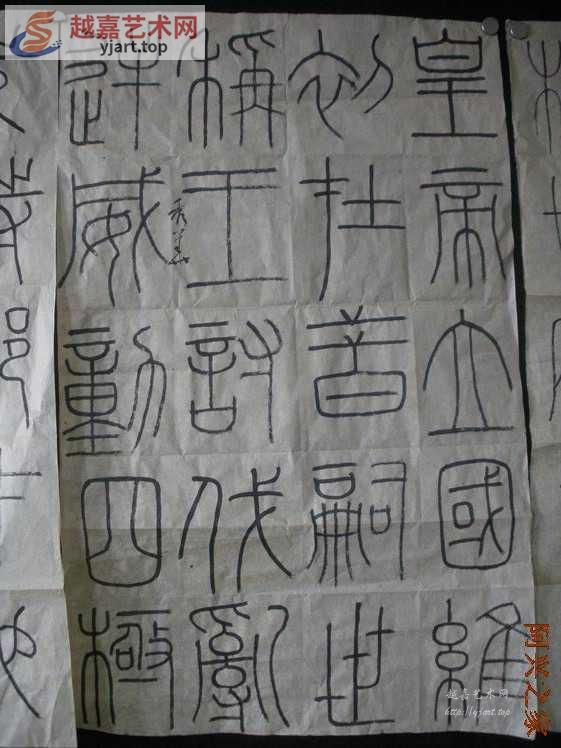 越嘉艺术网
yjart.top
皇帝立國維
初在昔嗣世
稱王討伐亂
逆威動四極
越嘉艺术网
http://yjart.top
阿兴之家